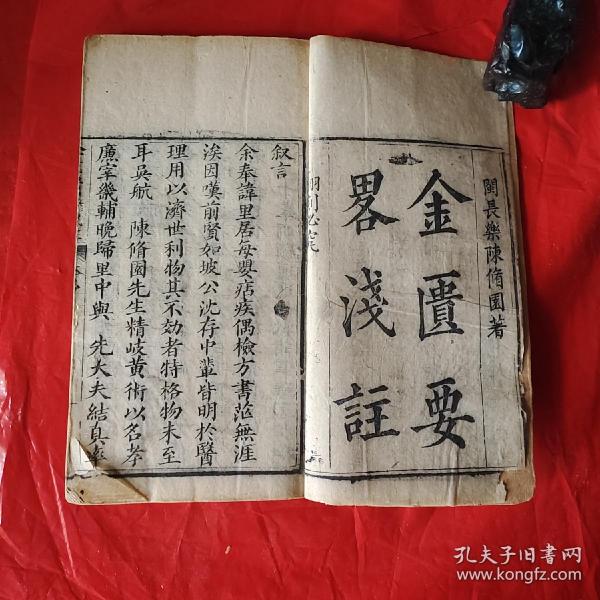 閩長樂陳脩園著
金匱要
畧淺註
翻刻必究
叙言
余奉諱里居每嬰痁疾偶檢方書茫無涯
涘因嘆前賢如坡公沈存中輩皆明於醫
理用以濟世利物其不効者特格物未至
耳吳航　陳脩園先生精岐黃術以名孝
廉宰畿輔晚歸里中與　先大夫結真率
孔夫子旧书网
www.kongfz.com